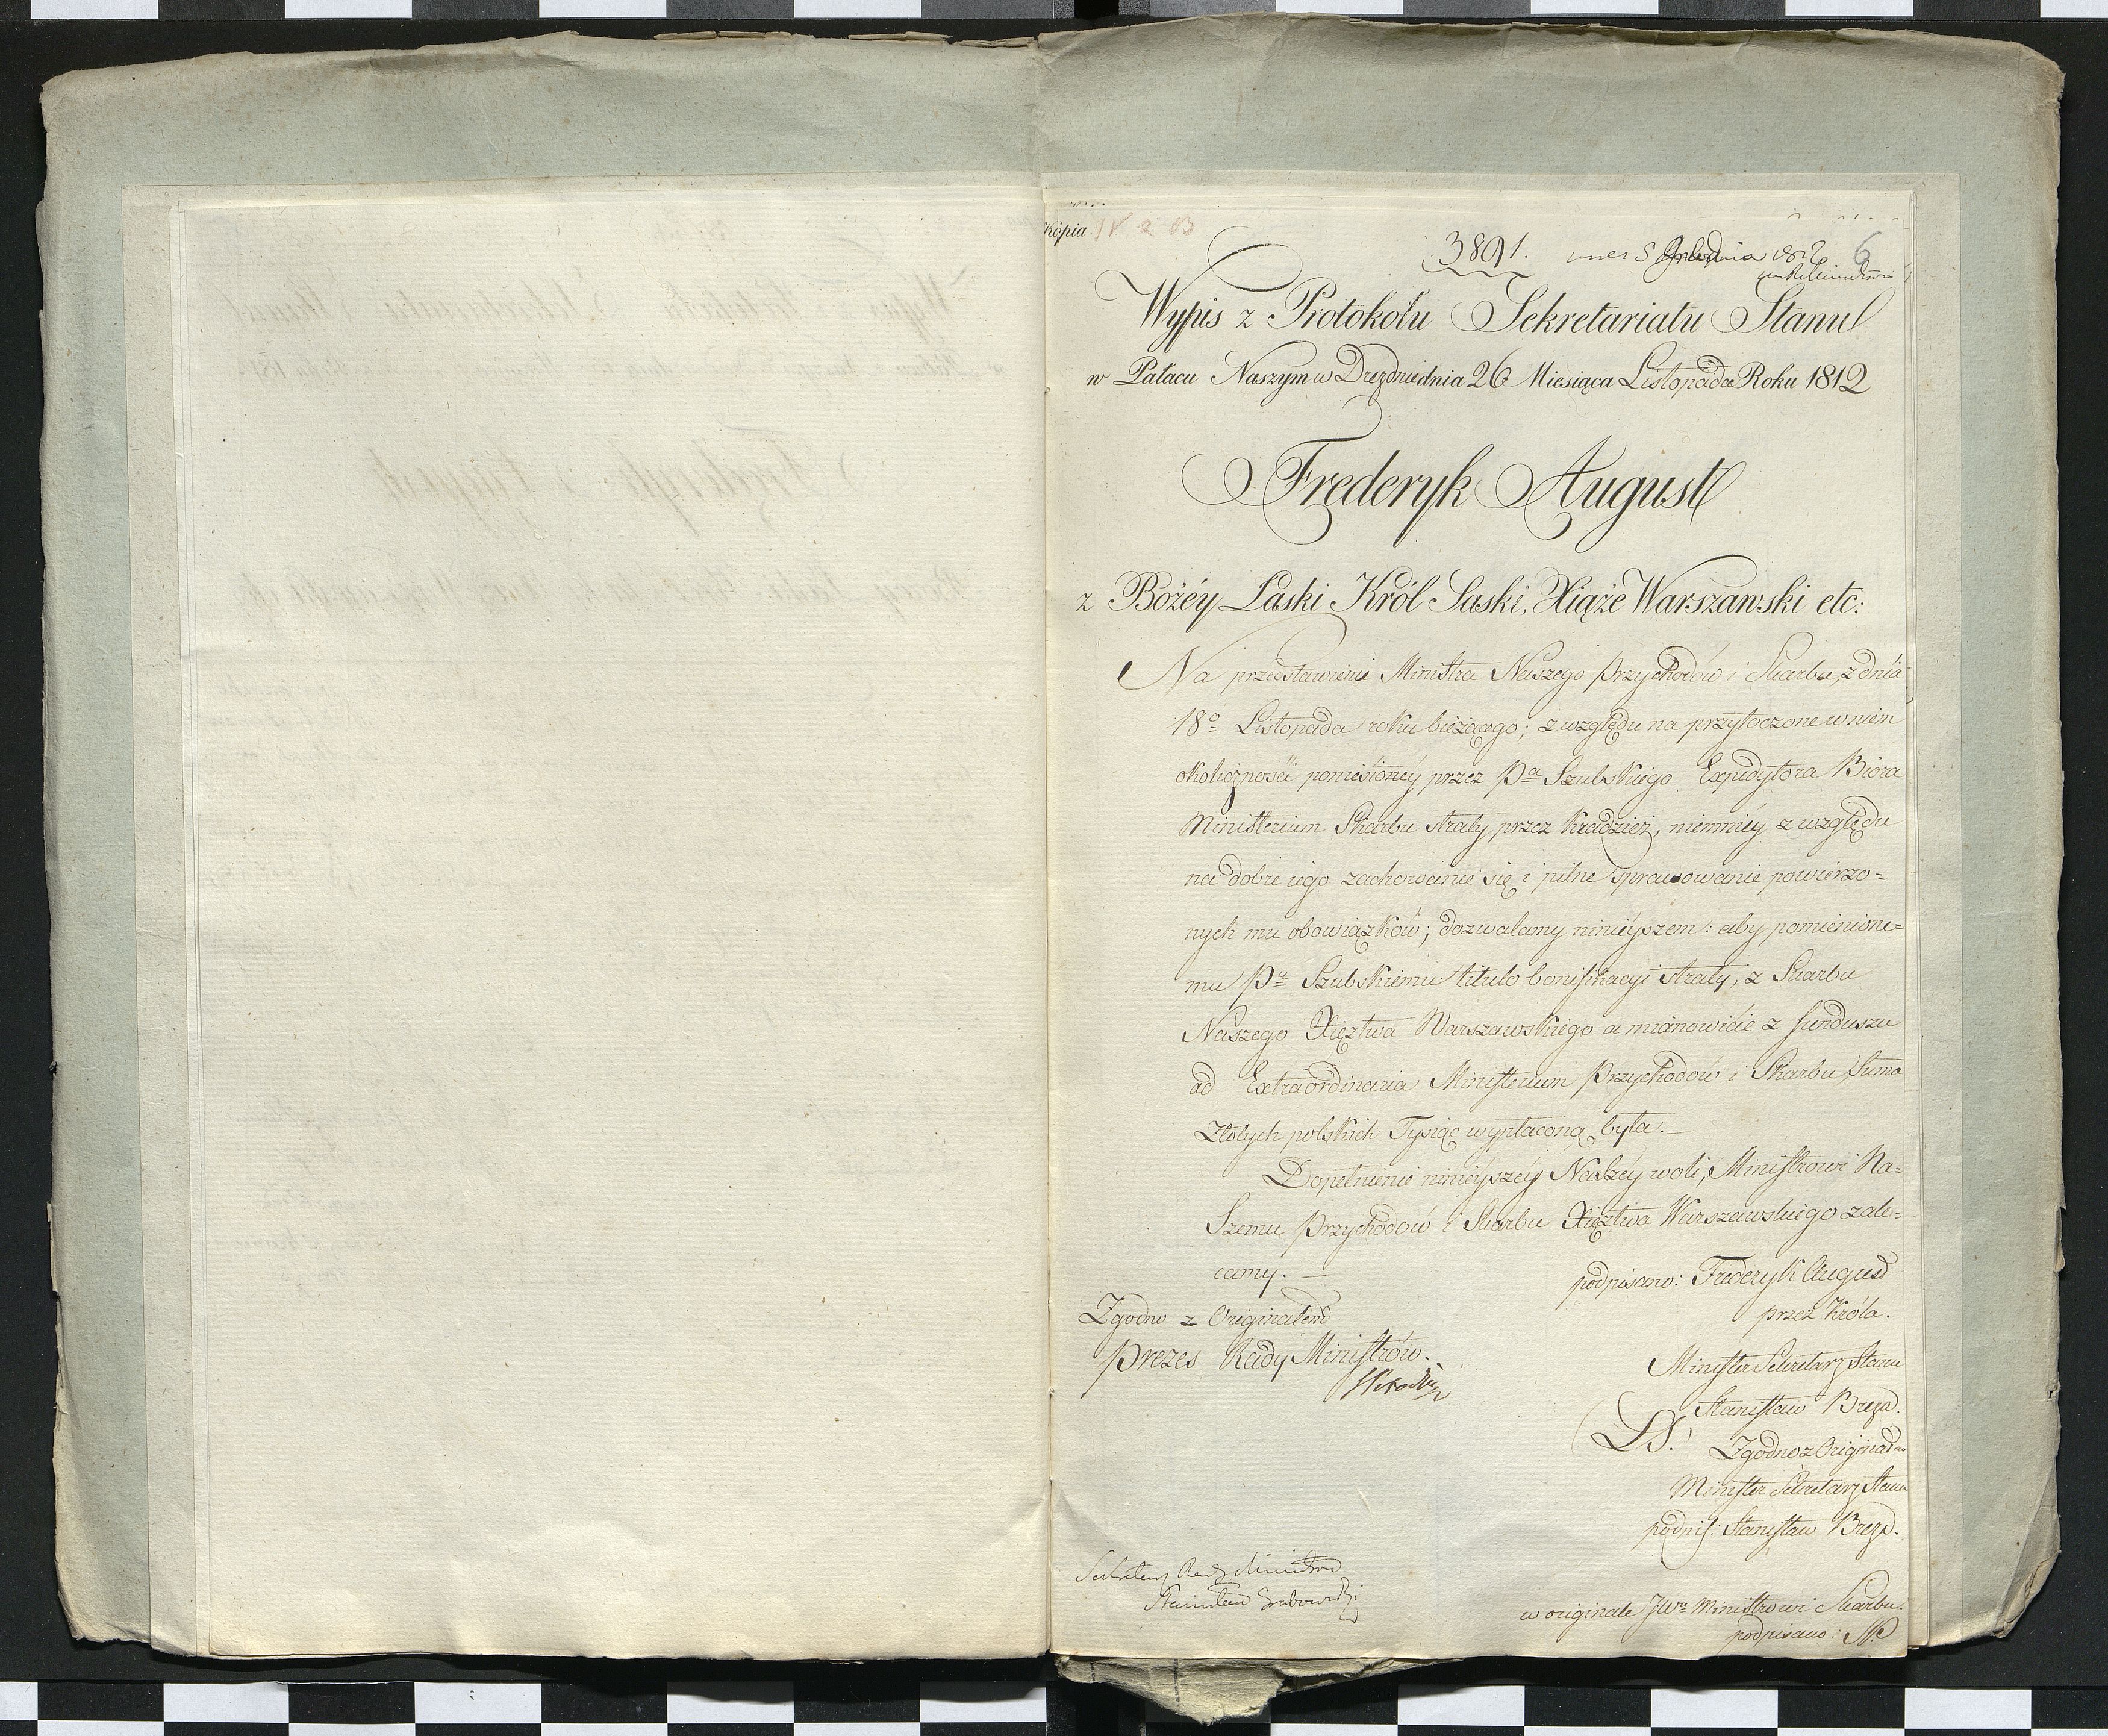 Kópia IV 2 B
3891. 5 Grudnia 1812 6
Wypis z Protokołu Sekretariatu Stanu
w Pałacu Naszym w Dreznie dnia 26 Miesiąca Listopada Roku 1812
Frederyk August
z Bożéy Łaski Król Saski, Xiąże Warszawski etc:
Na przedstawienie Ministra Naszego Przychodów i Skarbu, z dnia
18º Listopada roku bieżącego; z względu na przytoczone w niem
okoliczności poniesionéy przez Pª Szubskiego Expedytora Bióra
Ministerium Skarbu straty przez kradzież, niemniéy z względu
na dobre iego zachowanie się i pilne sprawowanie powierzo=
nych mu obowiązków; dozwalamy ninieyszem: aby pomienione=
mu Pu Szubskiemu titulo bonifikacyi straty, z Skarbu
Naszego Xięztwa Warszawskiego a mianowicie z funduszu
ad Extraordinaria Ministerium Przychodów i Skarbu, Suma
Złotych polskich Tysiąc wypłaconą była.
Dopełnienie ninieyszéy Naszéy woli, Ministrowi Na=
szemu Przychodów i Skarbu Xięztwa Warszawskiego zale=
camy. — podpisano: Frederyk August
Zgodno z Originałem przez Króla.
Prezes Rady Ministrów. Minister Sekretarz Stanu
Stanisław Breza.
LS. Zgodno z Originałem
Minister Sekretarz Stanu
podpis: Stanisław Breza.
Sekretarz Rady Ministrów
Stanisław Grabowski
w originale JWu Ministrowi Skarbu.
podpisano: